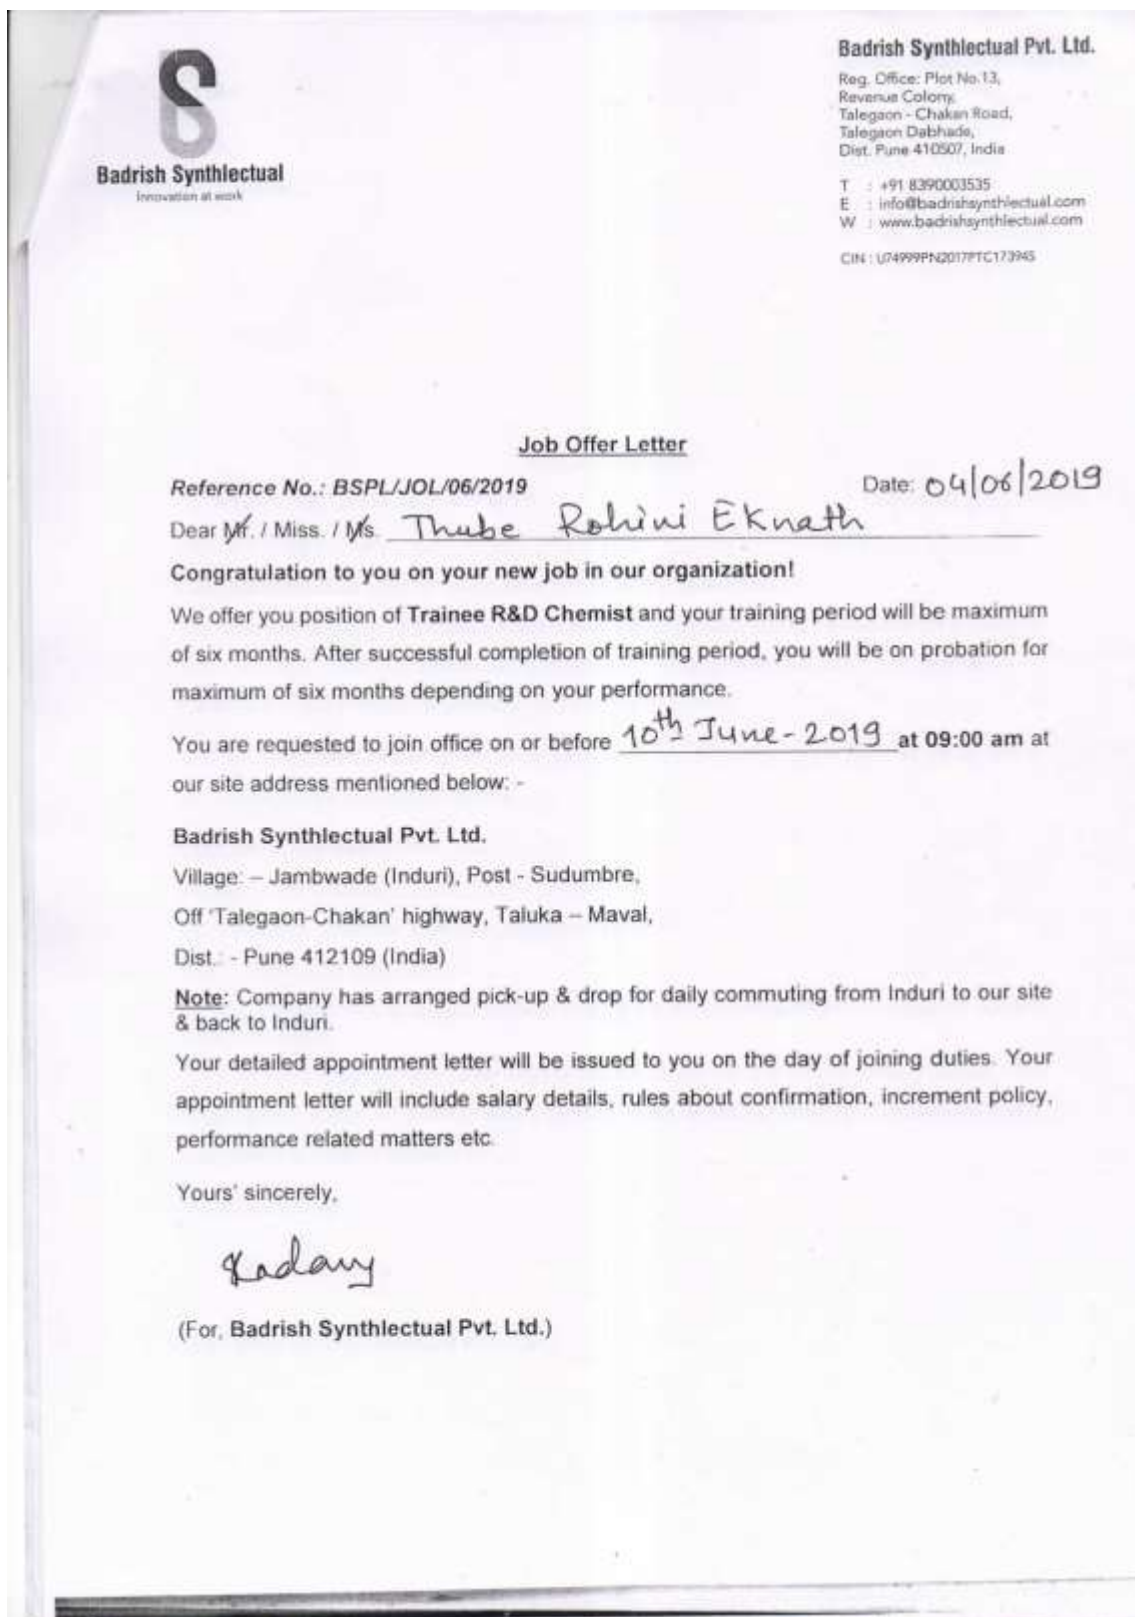 Badrish Synthlectual
innovation at work
Badrish Synthlectual Pvt. Ltd.
Reg. Office: Plot No.13,
Revenue Colony,
Talegaon - Chakan Road,
Talegaon Dabhade,
Dist. Pune 410507, India
T : +91 8390003535
E : info@badrishsynthlectual.com
W : www.badrishsynthlectual.com
CIN : U74999PN2017PTC173945
Job Offer Letter
Reference No.: BSPL/JOL/06/2019 Date: 04/06/2019
Dear Mr. / Miss. / Ms. Thube Rohini Eknath
Congratulation to you on your new job in our organization!
We offer you position of Trainee R&D Chemist and your training period will be maximum
of six months. After successful completion of training period, you will be on probation for
maximum of six months depending on your performance.
You are requested to join office on or before 10th June-2019 at 09:00 am at
our site address mentioned below: -
Badrish Synthlectual Pvt. Ltd.
Village: – Jambwade (Induri), Post - Sudumbre,
Off 'Talegaon-Chakan' highway, Taluka – Maval,
Dist.: - Pune 412109 (India)
Note: Company has arranged pick-up & drop for daily commuting from Induri to our site
& back to Induri.
Your detailed appointment letter will be issued to you on the day of joining duties. Your
appointment letter will include salary details, rules about confirmation, increment policy,
performance related matters etc.
Yours' sincerely,
(For, Badrish Synthlectual Pvt. Ltd.)